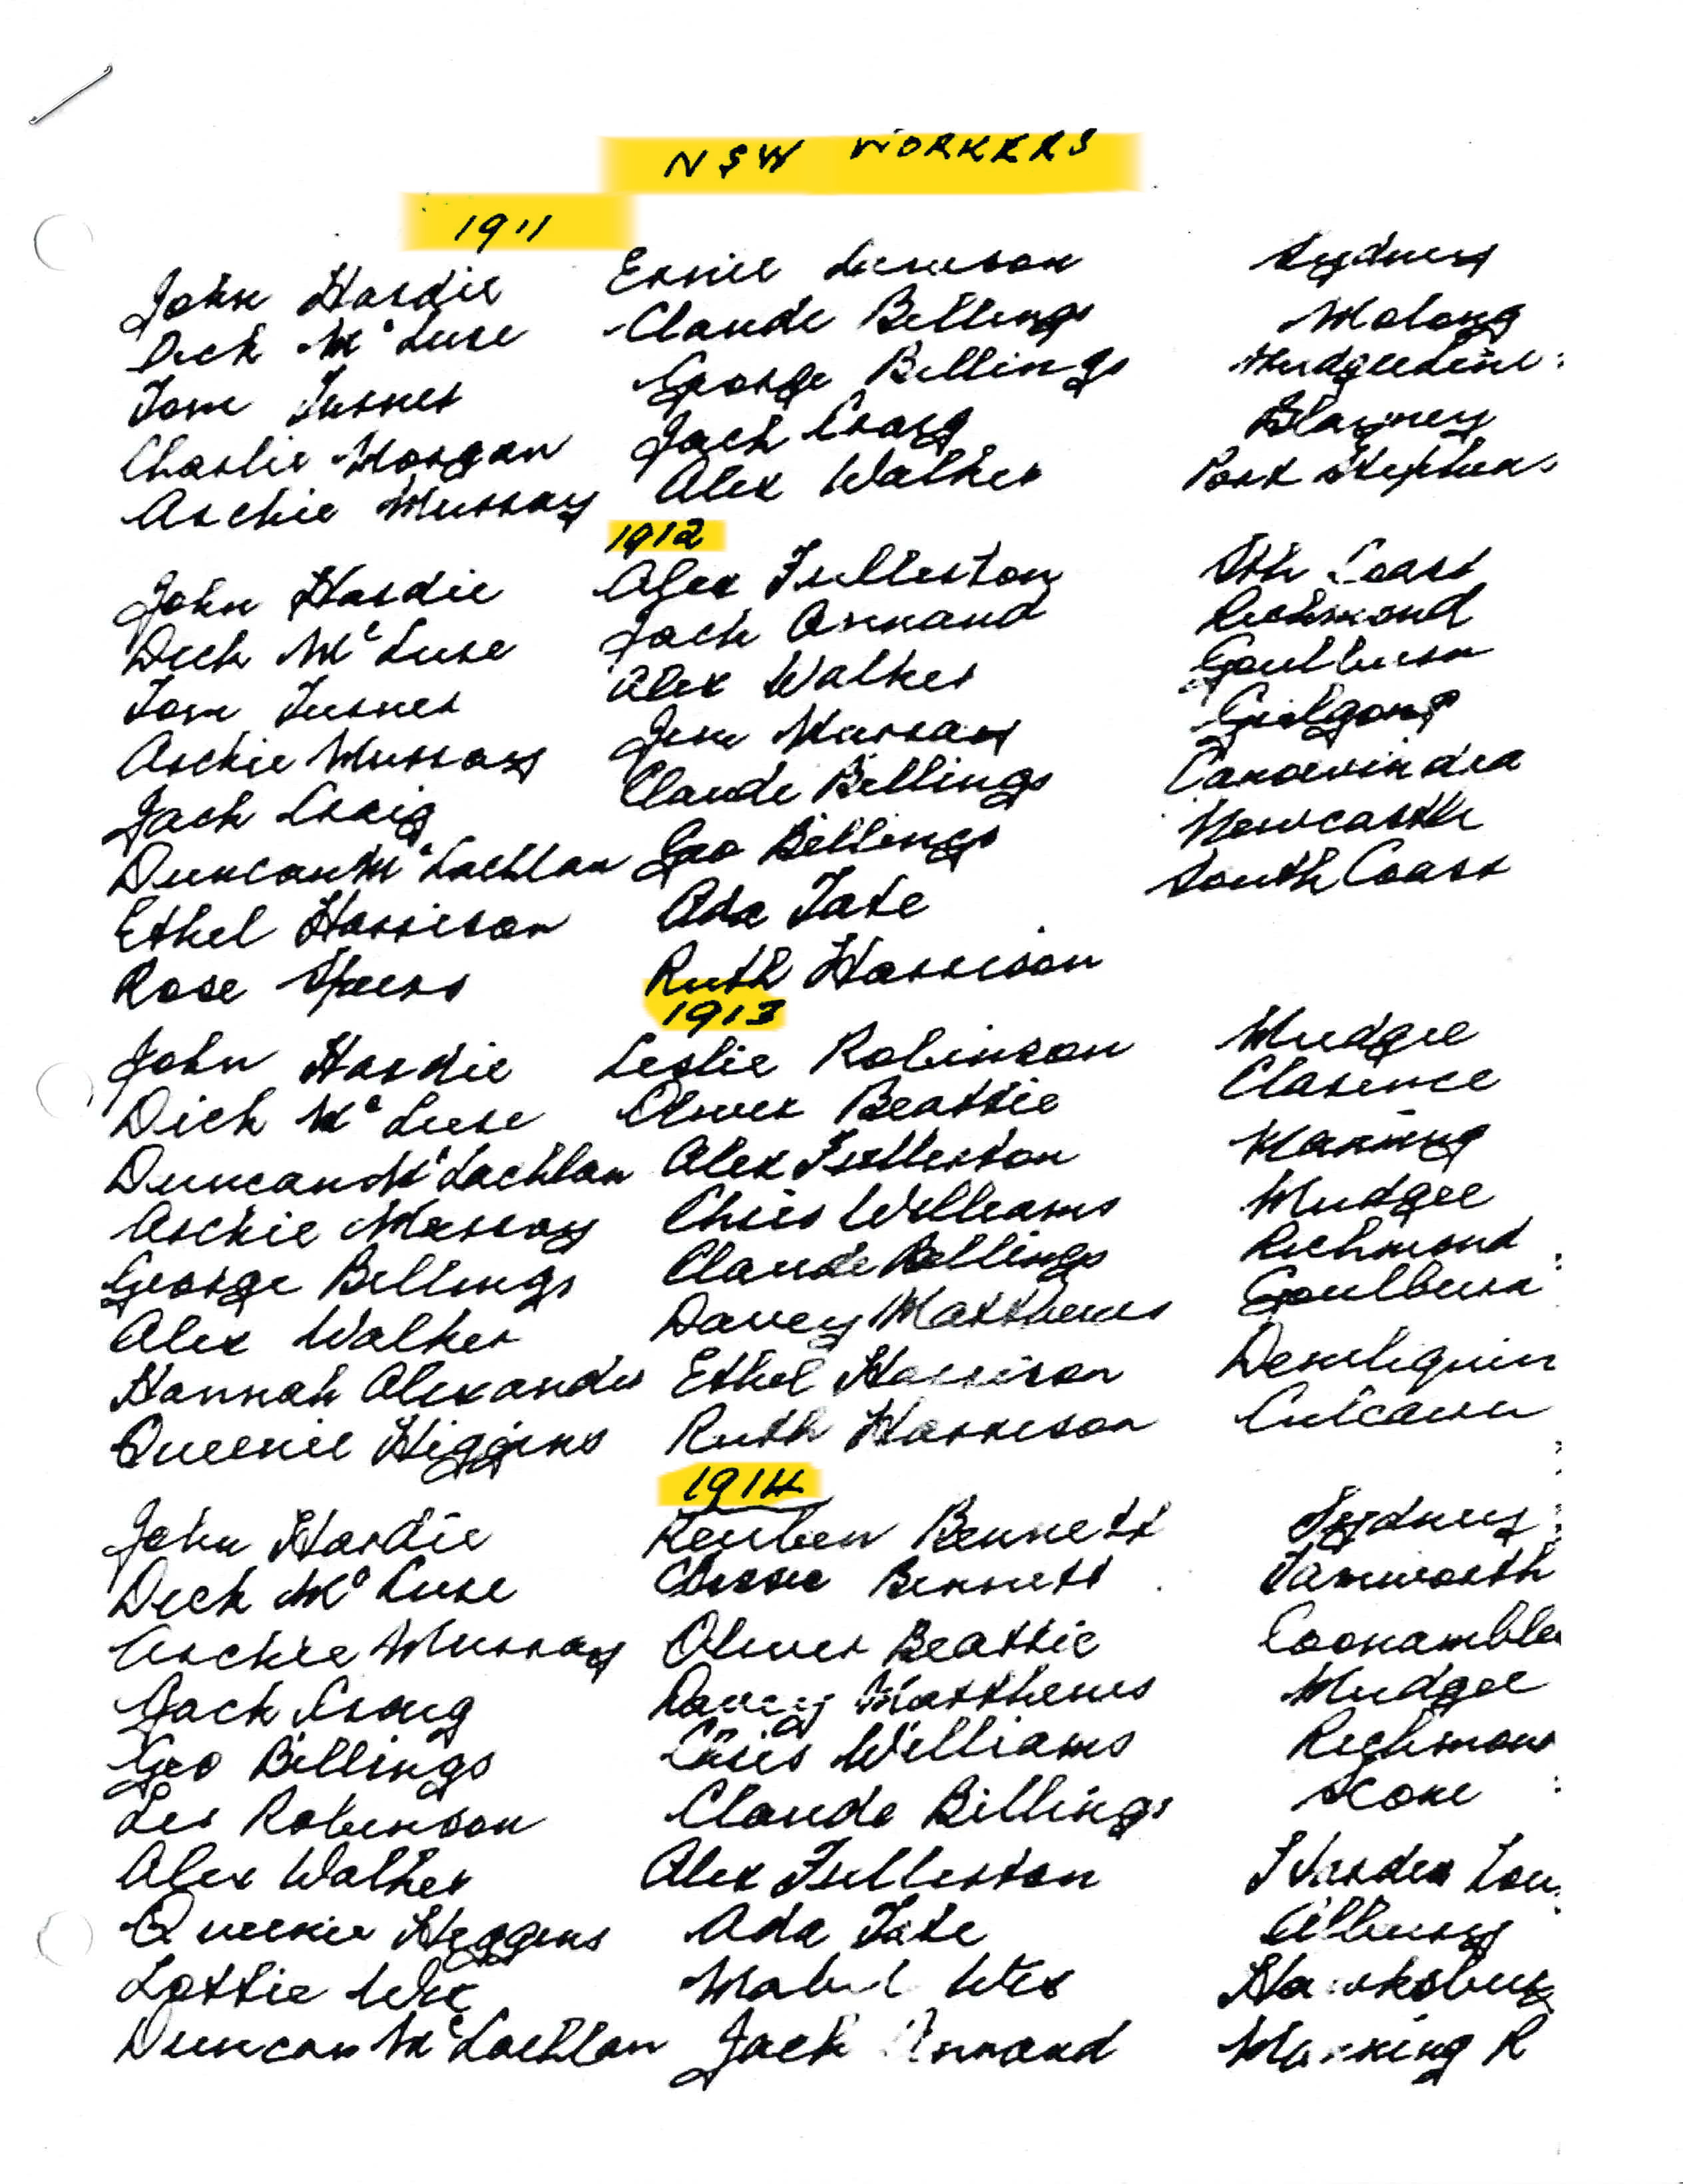 NSW WORKERS
1911
John Hardie Ernie Sydney
Dick McLure Claude Billings Molong
Tom Turner George Billings
Charlie Morgan Jack Craig Blayney
Archie Murray Alex Walker Port Stephens
1912
John Hardie Alex Fullerton Sth Coast
Dick McLure Jack Annand Richmond
Tom Turner Alex Walker Goulburn
Archie Murray Jim Murray Gulgong
Jack Craig Claude Billings Canowindra
Duncan McLachlan Geo Billings Newcastle
Ethel Harrison Ada Tate South Coast
Rose Speers Ruth Harrison
1913
John Hardie Leslie Robinson Mudgee
Dick McLure Oliver Beattie Clarence
Duncan McLachlan Alex Fullerton Manning
Archie Murray Chris Williams Mudgee
George Billings Claude Billings Richmond
Alex Walker Davey Matthews Goulburn
Hannah Alexander Ethel Harrison Deniliquin
Queenie Higgins Ruth Harrison Culcairn
1914
John Hardie Reuben Bennett Sydney
Dick McLure Bennett Tamworth
Archie Murray Oliver Beattie Coonamble
Jack Craig Davey Matthews Mudgee
Geo Billings Chris Williams Richmon
Les Robinson Claude Billings Scone
Alex Walker Alex Fullerton Harden
Queenie Higgins Ada Tate Albury
Lottie Wix Mabel Wix Hawkesbury
Duncan McLachlan Jack Annand Manning R